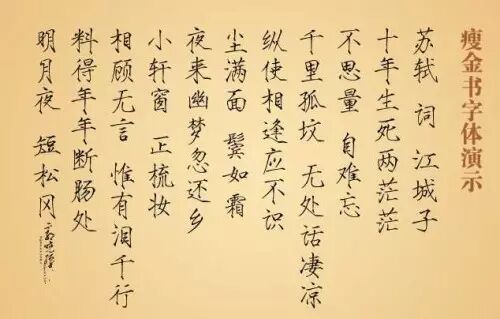 瘦金书字体演示
苏轼 词 江城子
十年生死两茫茫
不思量 自难忘
千里孤坟 无处话凄凉
纵使相逢应不识
尘满面 鬓如霜
夜来幽梦忽还乡
小轩窗 正梳妆
相顾无言 惟有泪千行
料得年年断肠处
明月夜 短松冈